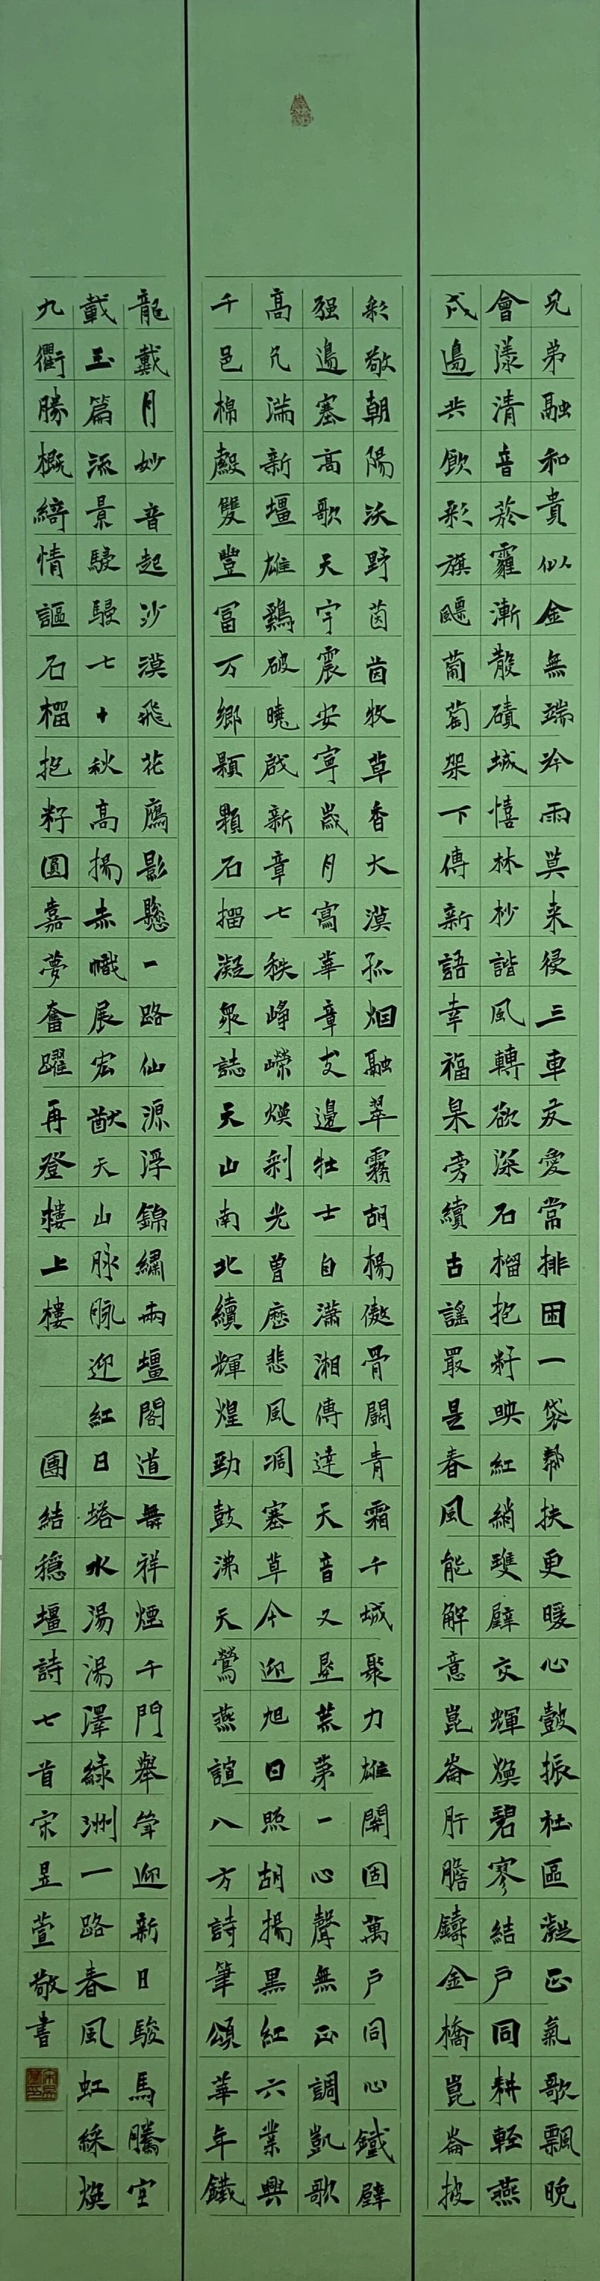 兄弟融和貴似金無端冷雨莫来侵三車友愛常排困一袋幫扶更暖心鼓振社區凝正氣歌飄晚
會漾清音菸霾漸散磧城憘林杪諧風轉欲深石榴抱籽映紅綃雙璧交輝煥碧寥結戶同耕輕燕
戍邊共飲彩旗飃葡萄架下傳新語幸福泉旁續古謠最是春風能解意崑崙肝膽鑄金橋崑崙披
彩敬朝陽沃野茵茵牧草香大漠孤烟融翠霧胡楊傲骨鬬青霜千城聚力雄關固萬戶同心鐵壁
强邊塞高歌天宇震安寧嵗月寫華章支邊壮士自瀟湘傳達天音又墾荒茅一心聲無正調凱歌
高凡满新壃雄鷄破曉啟新章七秩崢嶸煥彩光曽歷悲風凋塞草今迎旭日照胡揚黑紅六業興
千邑棉縠雙豐冨万鄉顆顆石榴凝衆誌天山南北續輝煌勁鼓沸天鶯燕諠八方詩筆頌華年鐵
龍戴月妙音起沙漠飛花鴈影懸一路仙源浮錦繡兩壃閣道無祥煙千門舉筆迎新日駿馬騰空
載玉篇流景駸駸七十秋高揚赤幟展宏猷天山脉脉迎紅日塔水湯湯澤綠洲一路春風虹綵煥
九衢勝概綺情謳石榴抱籽圓嘉夢奮躍再登樓上樓
團結穩壃詩七首宋昱萱敬書